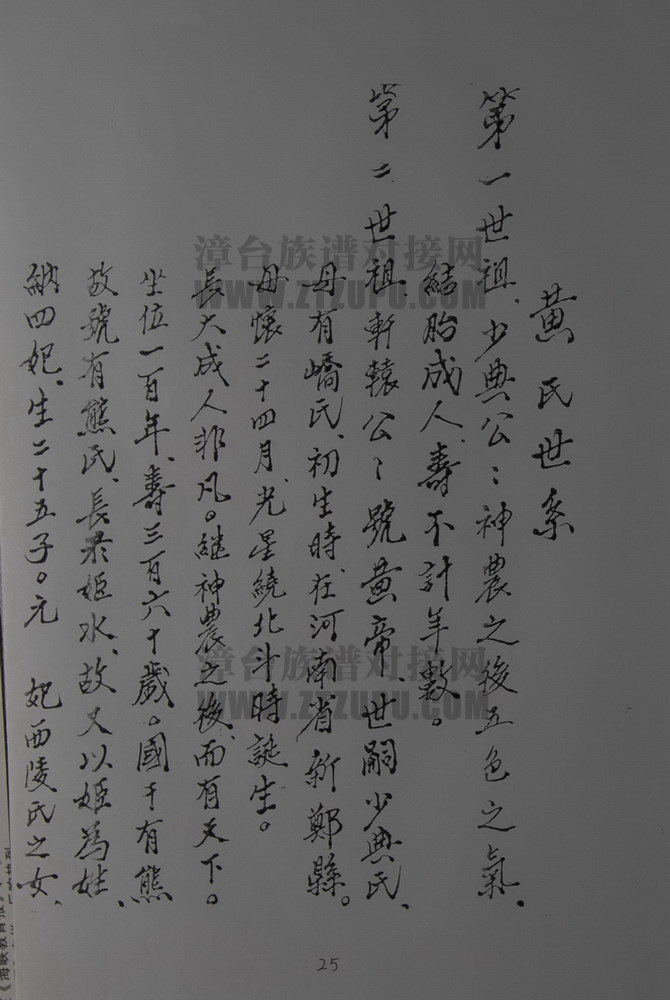 黄氏世系
第一世祖、少典公：神農之後五色之氣、
結胎成人、壽不計年數。
第二世祖軒轅公：號黄帝、世嗣少典氏、
母有嶠氏、初生時、在河南省新鄭縣。
母懷二十四月、光星繞北斗時誕生。
長大成人非凡。继神農之後、而有天下。
坐位一百年、壽三百六十歲。國于有熊
故號有熊氏、長於姬水、故又以姬為姓、
納四妃、生二十五子。元 妃西陵氏之女、
25
漳台族谱对接网
WWW.ZTZUPU.COM
漳台族谱对接网
WWW.ZTZUPU.COM
《海峡教育报》